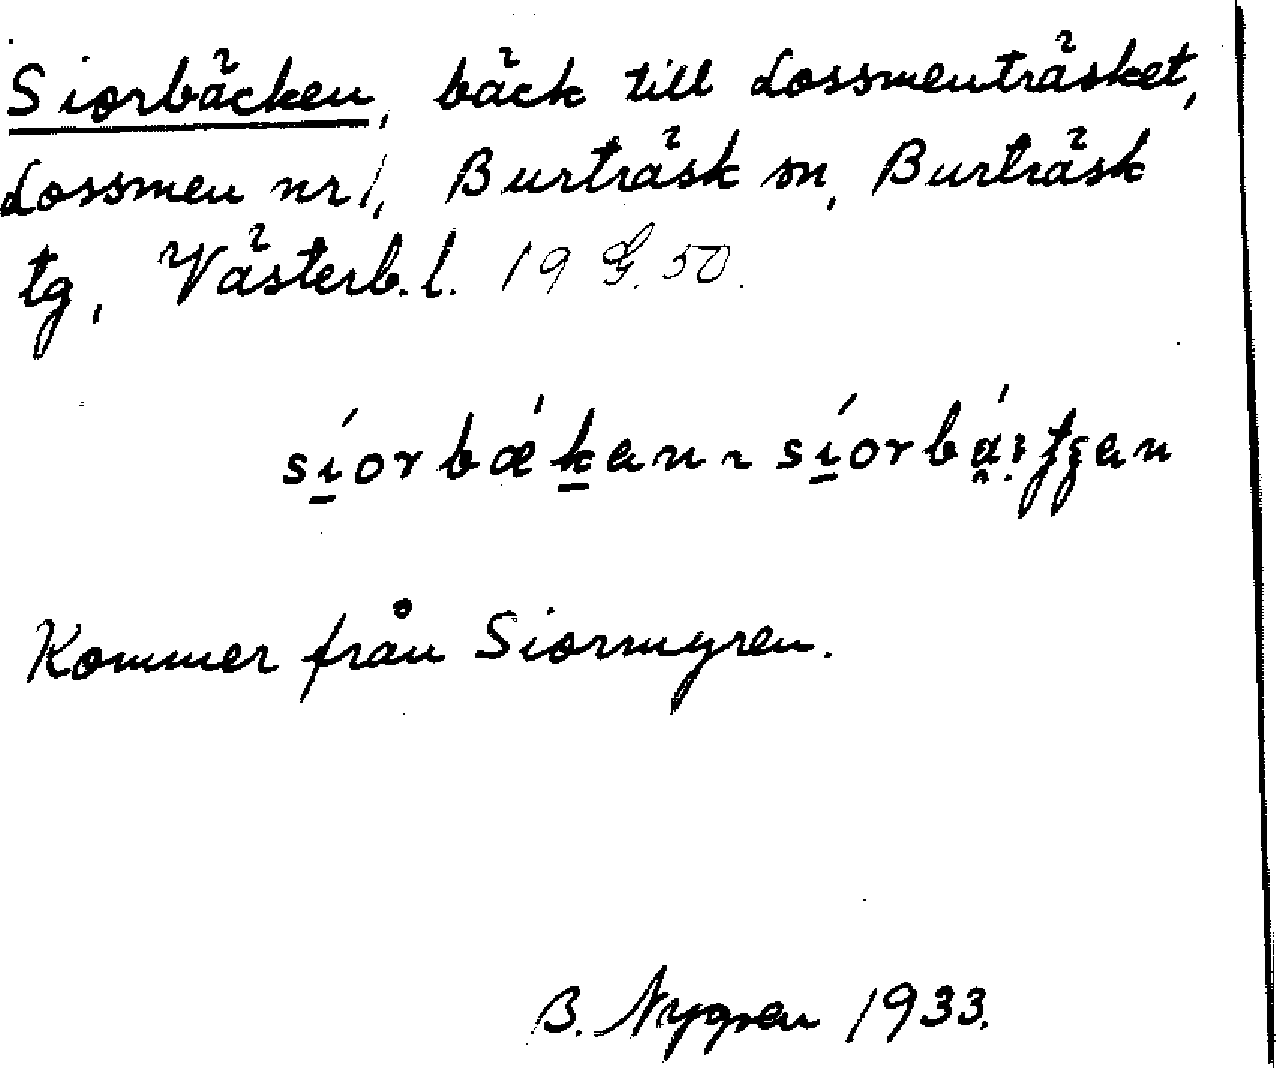 Siorbäcken, bäck till Lossmenträsket,
Lossmen nr 1, Burträsk sn, Burträsk
tg, Västerb. l. 19 G. 50.
síorbǽkan ~ síorbä́:tʃan
Kommer från Siormyren.
B. Nygren 1933.